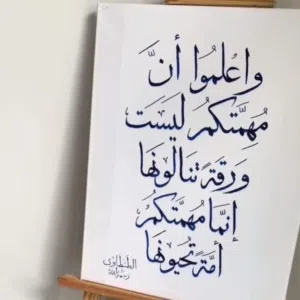 واعلموا أنَّ
مُهمّتكمُ ليست
ورقةً تنالونها
إنّما مهمّتكمُ
أمّةً تُحيونها
الطنطاوي
رحمه الله